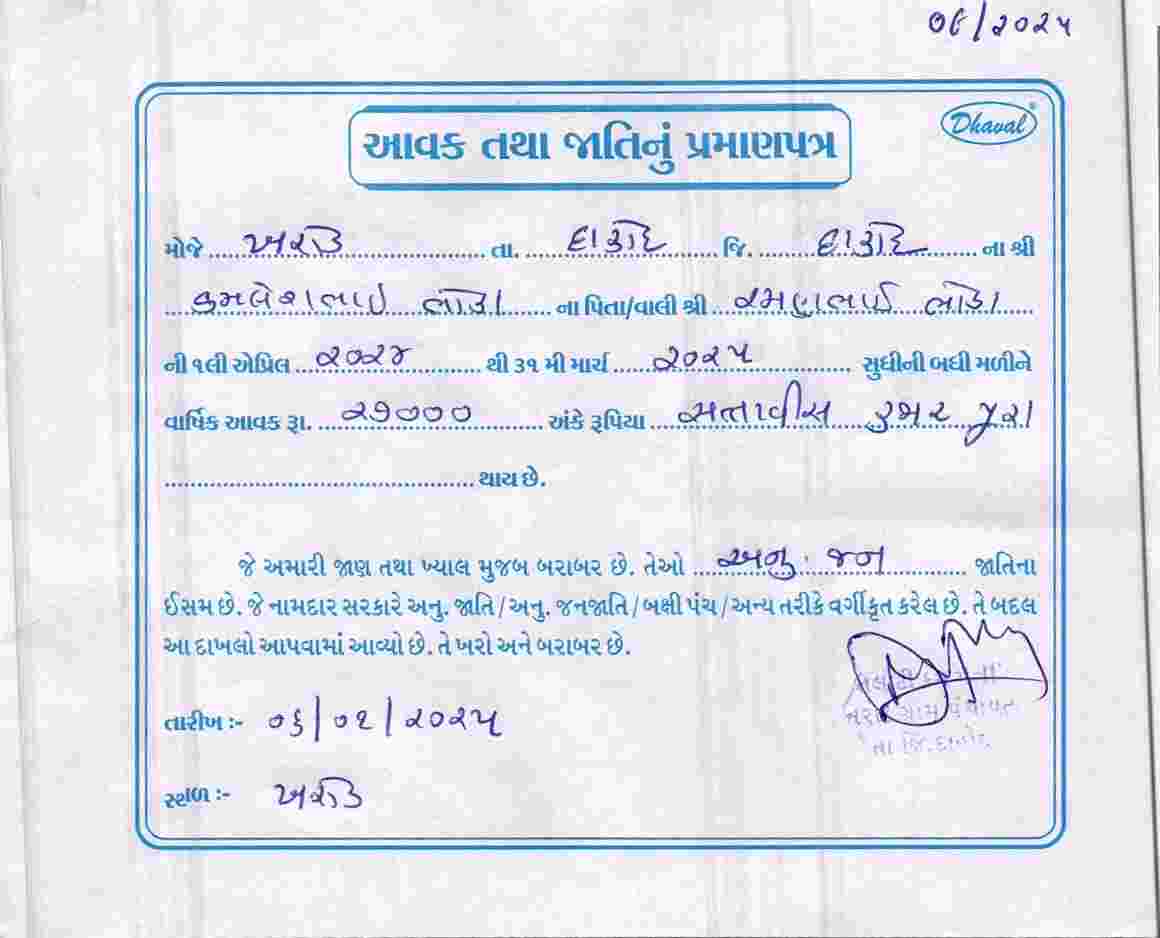 ૦૬/૨૦૨૫
આવક તથા જાતિનું પ્રમાણપત્ર
Dhaval
મોજે ખરોડ તા. દાહોદ જિ. દાહોદ ના શ્રી
કમલેશભાઇ ભોહા ના પિતા/વાલી શ્રી રમણભાઇ ભોહા
ની ૧લી એપ્રિલ ૨૦૨૪ થી ૩૧ મી માર્ચ ૨૦૨૫ સુધીની બધી મળીને
વાર્ષિક આવક રૂા. ૨૭૦૦૦ અંકે રૂપિયા સત્તાવીસ હજાર પુરા
થાય છે.
જે અમારી જાણ તથા ખ્યાલ મુજબ બરાબર છે. તેઓ અનુ. જન જાતિના
ઈસમ છે. જે નામદાર સરકારે અનુ. જાતિ / અનુ. જનજાતિ / બક્ષી પંચ / અન્ય તરીકે વર્ગીકૃત કરેલ છે. તે બદલ
આ દાખલો આપવામાં આવ્યો છે. તે ખરો અને બરાબર છે.
તારીખ :- ૦૬/૦૧/૨૦૨૫
ગ્રામ પંચાયત
તા જિ. દાહોદ
સ્થળ :- ખરોડ